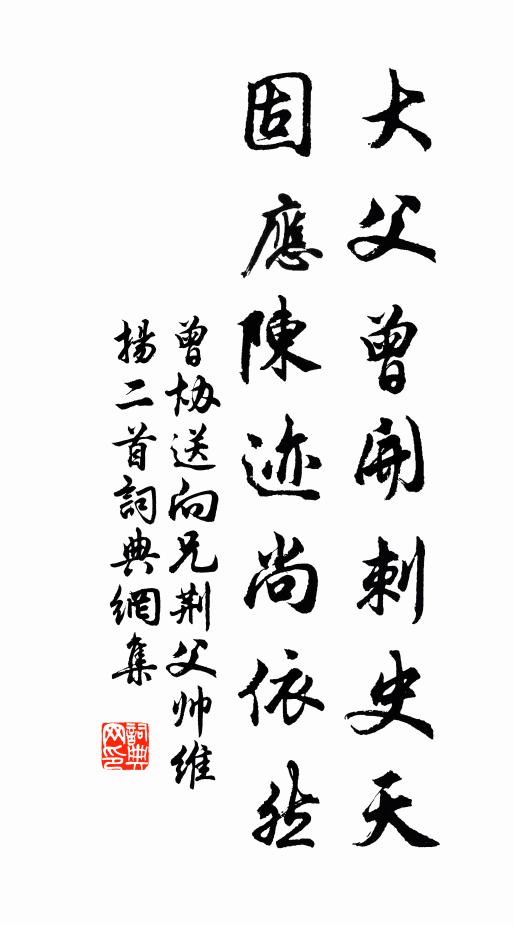 大父曾開刺史天
固應陳迹尚依然
曾協送向兄荆父帅維
揚二首詞典網集
詞典網印